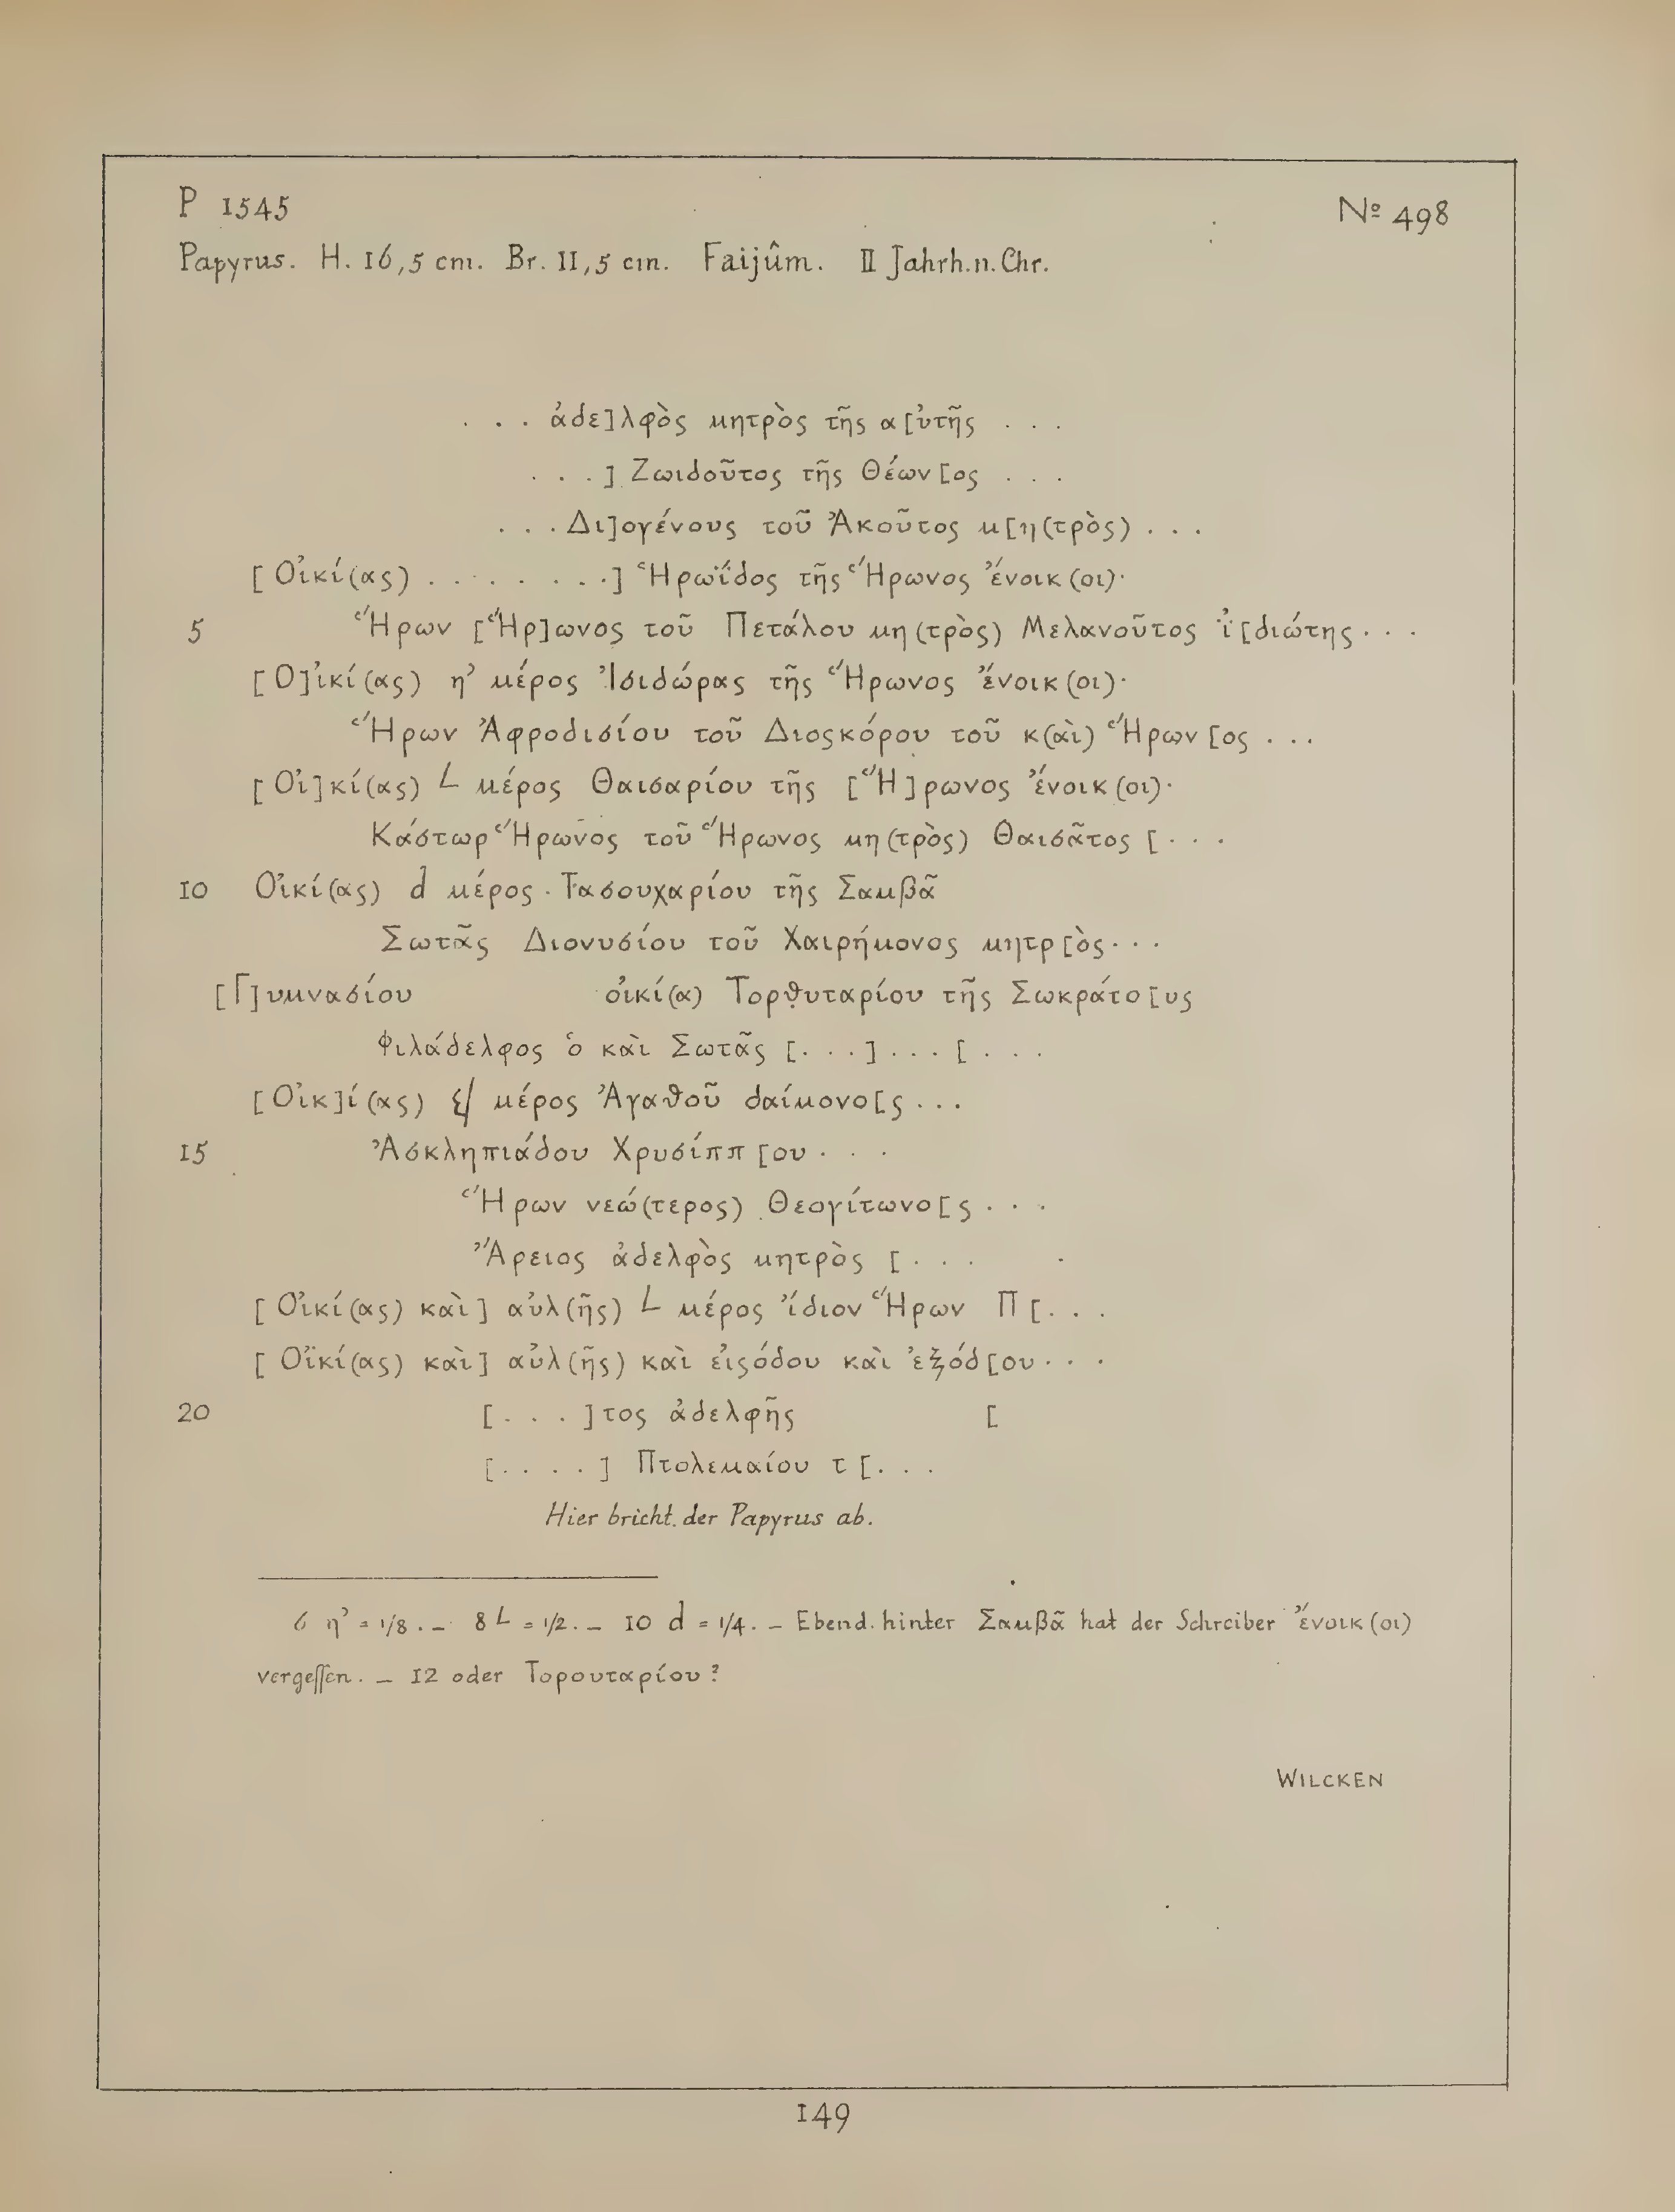 P 1545
№ 498
Papyrus. H. 16,5 cm. Br. 11,5 cm. Faijûm. II Jahrh. n. Chr.
. . . ἀδε]λφὸς μητρὸς τῆς α[ὐτῆς . . .
. . . ] Ζωιδοῦτος τῆς Θέων[ος . . .
. . . Δι]ογένους τοῦ Ἀκοῦτος μ[η(τρὸς) . . .
[Οἰκί(ας) . . . . . . . .] Ἡρωΐδος τῆς Ἥρωνος ἔνοικ(οι)·
5 Ἥρων [Ἥρ]ωνος τοῦ Πετάλου μη(τρὸς) Μελανοῦτος ἰ̈[διώτης . . .
[Ο]ἰκί(ας) η’ μέρος Ἰσιδώρας τῆς Ἥρωνος ἔνοικ(οι)·
Ἥρων Ἀφροδισίου τοῦ Διοςκόρου τοῦ κ(αὶ) Ἥρων[ος . . .
[Οἰ]κί(ας) L μέρος Θαισαρίου τῆς [Ἥ]ρωνος ἔνοικ(οι)·
Κάστωρ Ἥρωνος τοῦ Ἥρωνος μη(τρὸς) Θαισᾶτος [ . . .
10 Οἰκί(ας) d μέρος Τασουχαρίου τῆς Σαμβᾶ
Σωτᾶς Διονυσίου τοῦ Χαιρήμονος μητρ[ὸς . . .
[Γ]υμνασίου οἰκί(α) Τορθ̣υταρίου τῆς Σωκράτο[υς
Φιλάδελφος ὁ καὶ Σωτᾶς [. . .] . . . [ . . .
[Οἰκ]ί(ας) μέρος Ἀγαθοῦ δαίμονο[ς . . .
15 Ἀσκληπιάδου Χρυσίππ[ου . . .
Ἥρων νεώ(τερος) Θεογίτωνο[ς . . .
Ἄρειος ἀδελφὸς μητρὸς [ . . .
[Οἰκί(ας) καὶ] αὐλ(ῆς) L μέρος ἴδιον Ἥρων Π[. . .
[Οἰκί(ας) καὶ] αὐλ(ῆς) καὶ εἰςόδου καὶ ἐξόδ[ου . . .
20 [. . .]τος ἀδελφῆς [
[. . . .] Πτολεμαίου τ[. . .
Hier bricht der Papyrus ab.
6 η’ = 1/8. – 8 L = 1/2. – 10 d = 1/4. – Ebend. hinter Σαμβᾶ hat der Schreiber ἔνοικ(οι)
vergeſſen. – 12 oder Τορουταρίου?
WILCKEN
149